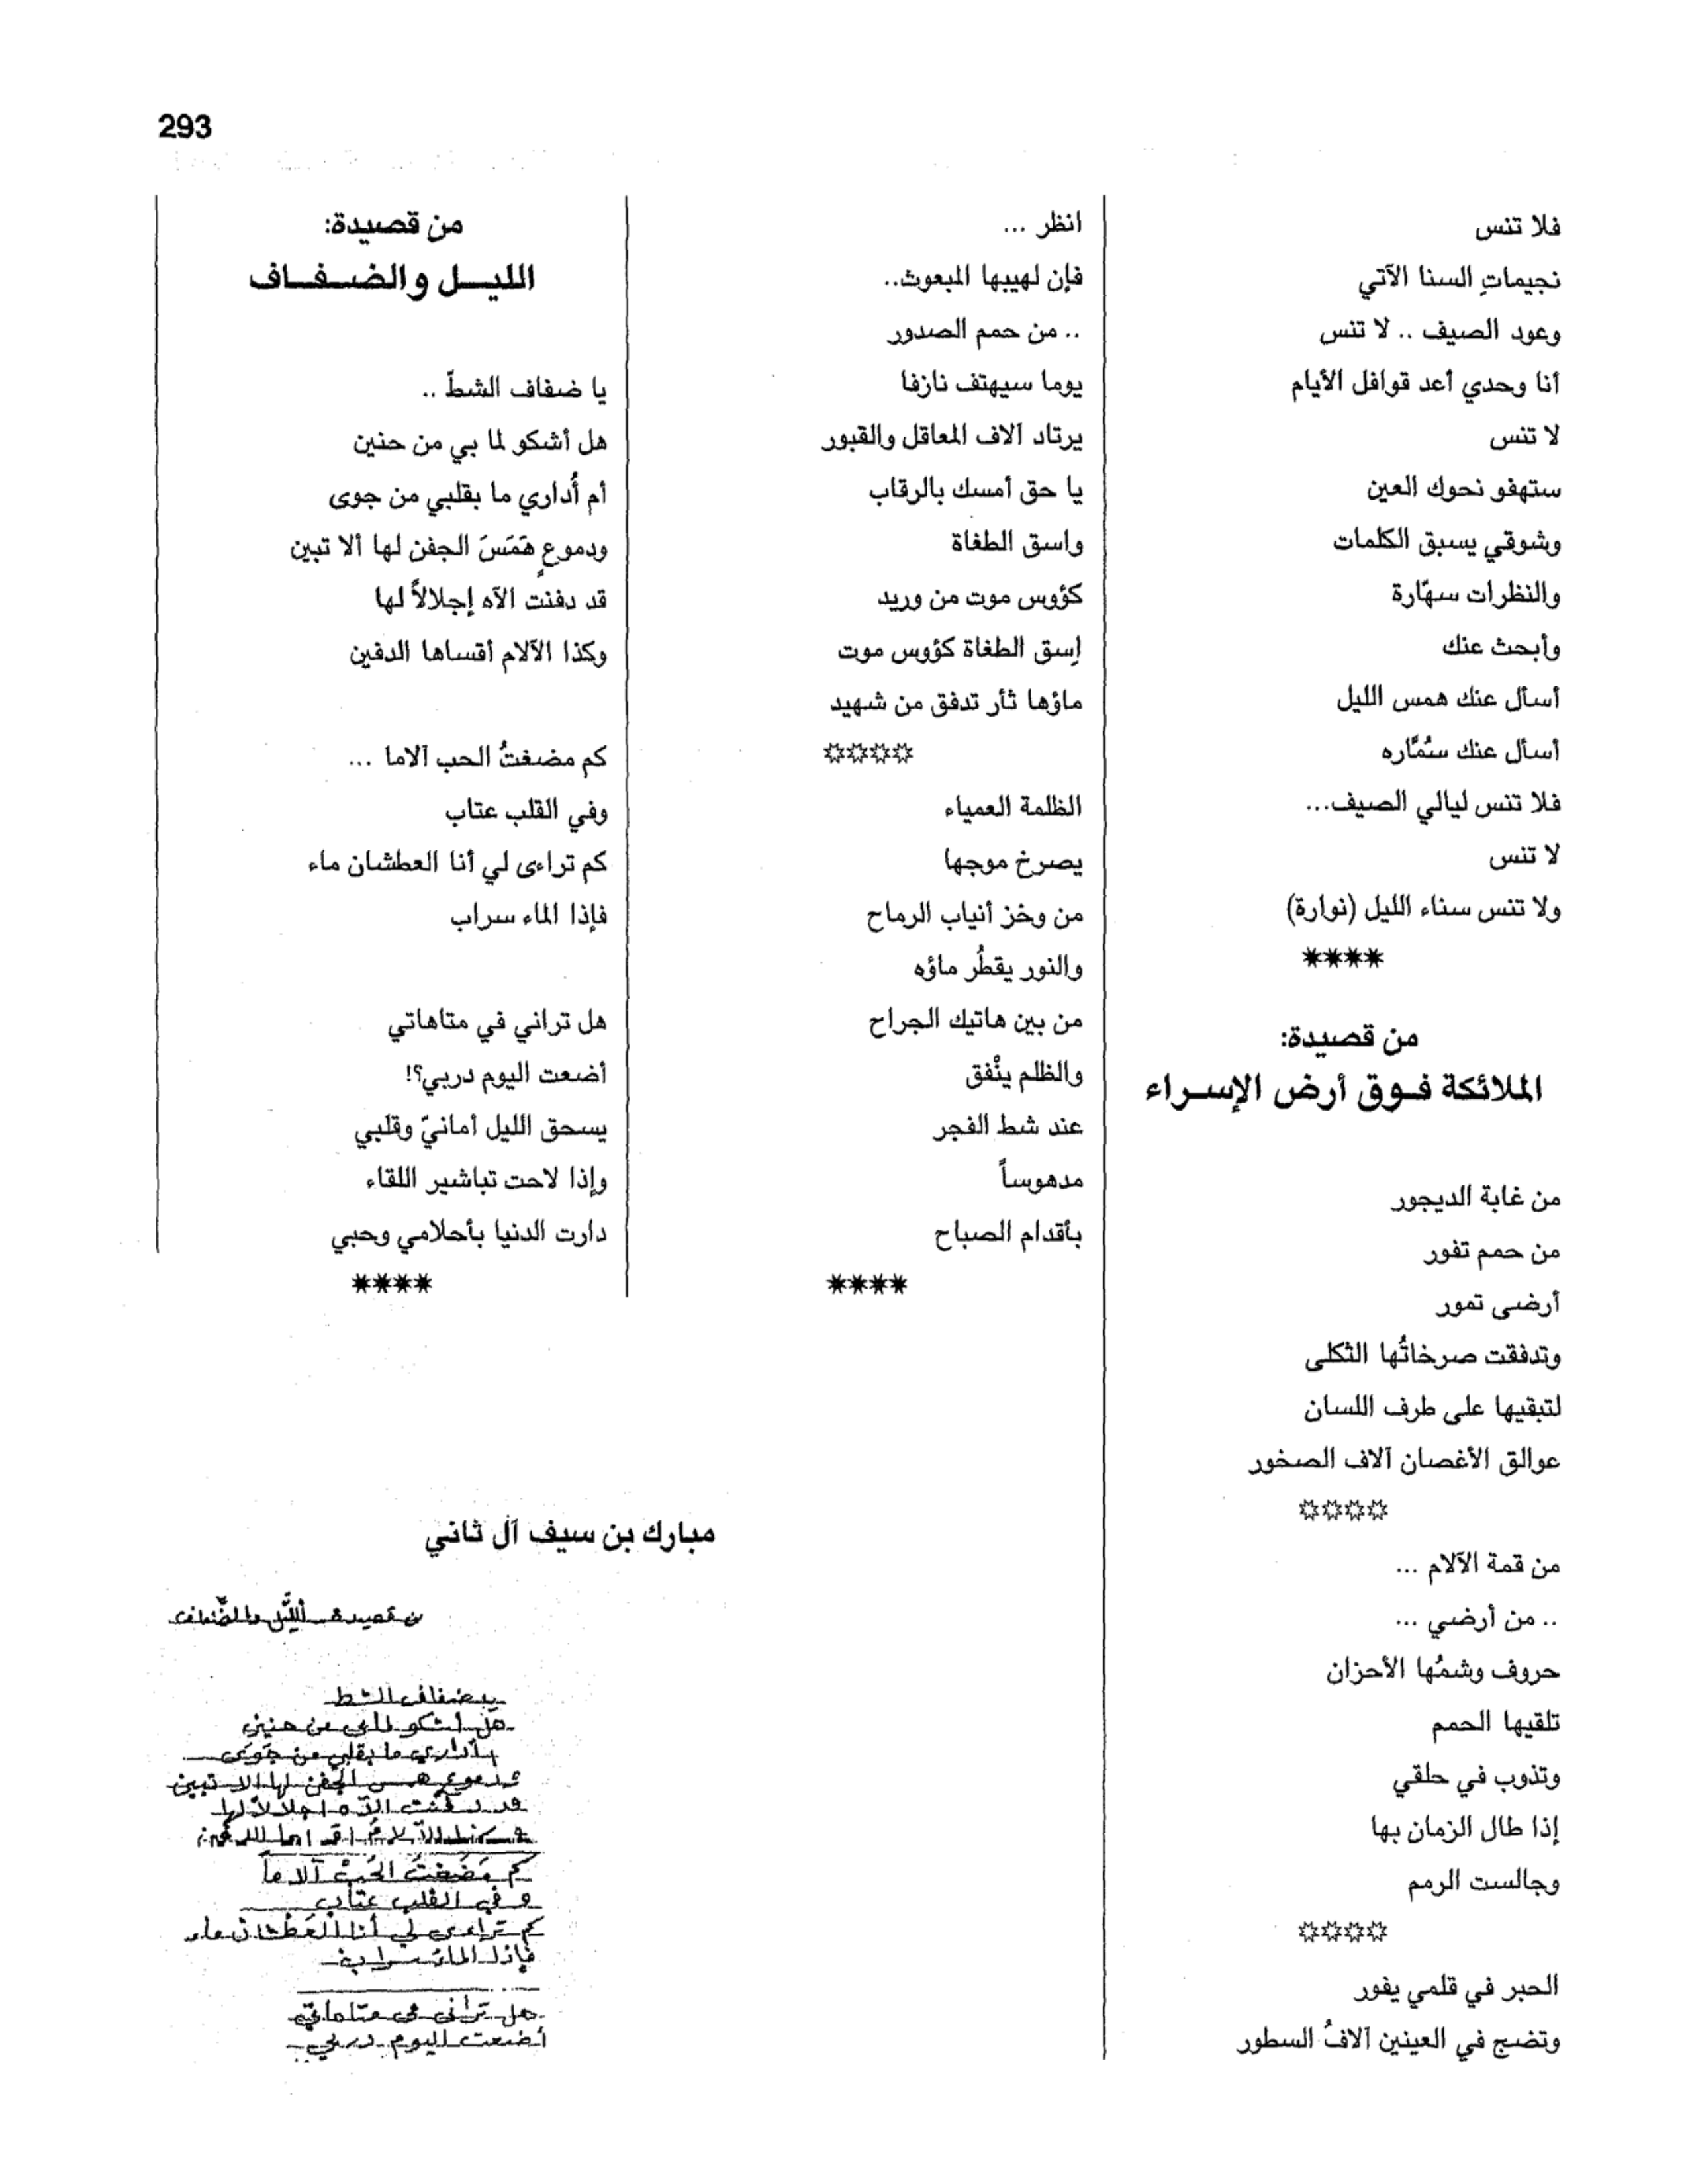 293
فلا تنس
نجيماتِ السنا الآتي
وعود الصيف .. لا تنس
أنا وحدي أعد قوافل الأيام
لا تنس
ستهفو نحوك العين
وشوقي يسبق الكلمات
والنظرات سهّارة
وأبحث عنك
أسأل عنك همس الليل
أسأل عنك سُمَّاره
فلا تنس ليالي الصيف...
لا تنس
ولا تنس سناء الليل (نوارة)
****
من قصيدة:
الملائكة فوق أرض الإسراء
من غابة الديجور
من حمم تفور
أرضى تمور
وتدفقت صرخاتُها الثكلى
لتبقيها على طرف اللسان
عوالق الأغصان آلاف الصخور
☆☆☆☆
من قمة الآلام ...
.. من أرضي ...
حروف وشمُها الأحزان
تلقيها الحمم
وتذوب في حلقي
إذا طال الزمان بها
وجالست الرمم
☆☆☆☆
الحبر في قلمي يفور
وتضج في العينين آلافُ السطور
انظر ...
فإن لهيبها المبعوث..
.. من حمم الصدور
يوما سيهتف نازفا
يرتاد آلاف المعاقل والقبور
يا حق أمسك بالرقاب
واسق الطغاة
كؤوس موت من وريد
إسق الطغاة كؤوس موت
ماؤها ثأر تدفق من شهيد
☆☆☆☆
الظلمة العمياء
يصرخ موجها
من وخز أنياب الرماح
والنور يقطُر ماؤه
من بين هاتيك الجراح
والظلم ينْفق
عند شط الفجر
مدهوساً
بأقدام الصباح
****
من قصيدة:
الليل والضفاف
يا ضفاف الشطّ ..
هل أشكو لما بي من حنين
أم أُداري ما بقلبي من جوى
ودموعٍ هَمَسَ الجفن لها ألا تبين
قد دفنت الآه إجلالاً لها
وكذا الآلام أقساها الدفين
كم مضغتُ الحب آلاما ...
وفي القلب عتاب
كم تراءى لي أنا العطشان ماء
فإذا الماء سراب
هل تراني في متاهاتي
أضعت اليوم دربي؟!
يسحق الليل أمانيّ وقلبي
وإذا لاحت تباشير اللقاء
دارت الدنيا بأحلامي وحبي
****
مبارك بن سيف آل ثاني
من قصيدة الليل والضفاف
يا ضفاف الشط
هل أشكو لما بي من حنين
أم أداري ما بقلبي من جَوَى
ودموع همس الجفن لها الا تبين
قد دفنت الآه اجلالاً لها
وكذا الآلامُ اقساها الدفين
كم مَضَغتُ الحُبَّ آلاماً
وفي القلب عتاب
كم تراءى لي أنا العَطْشان ماء
فإذا الماء سراب
هل تراني في متاهاتي
أضعت اليوم دربي